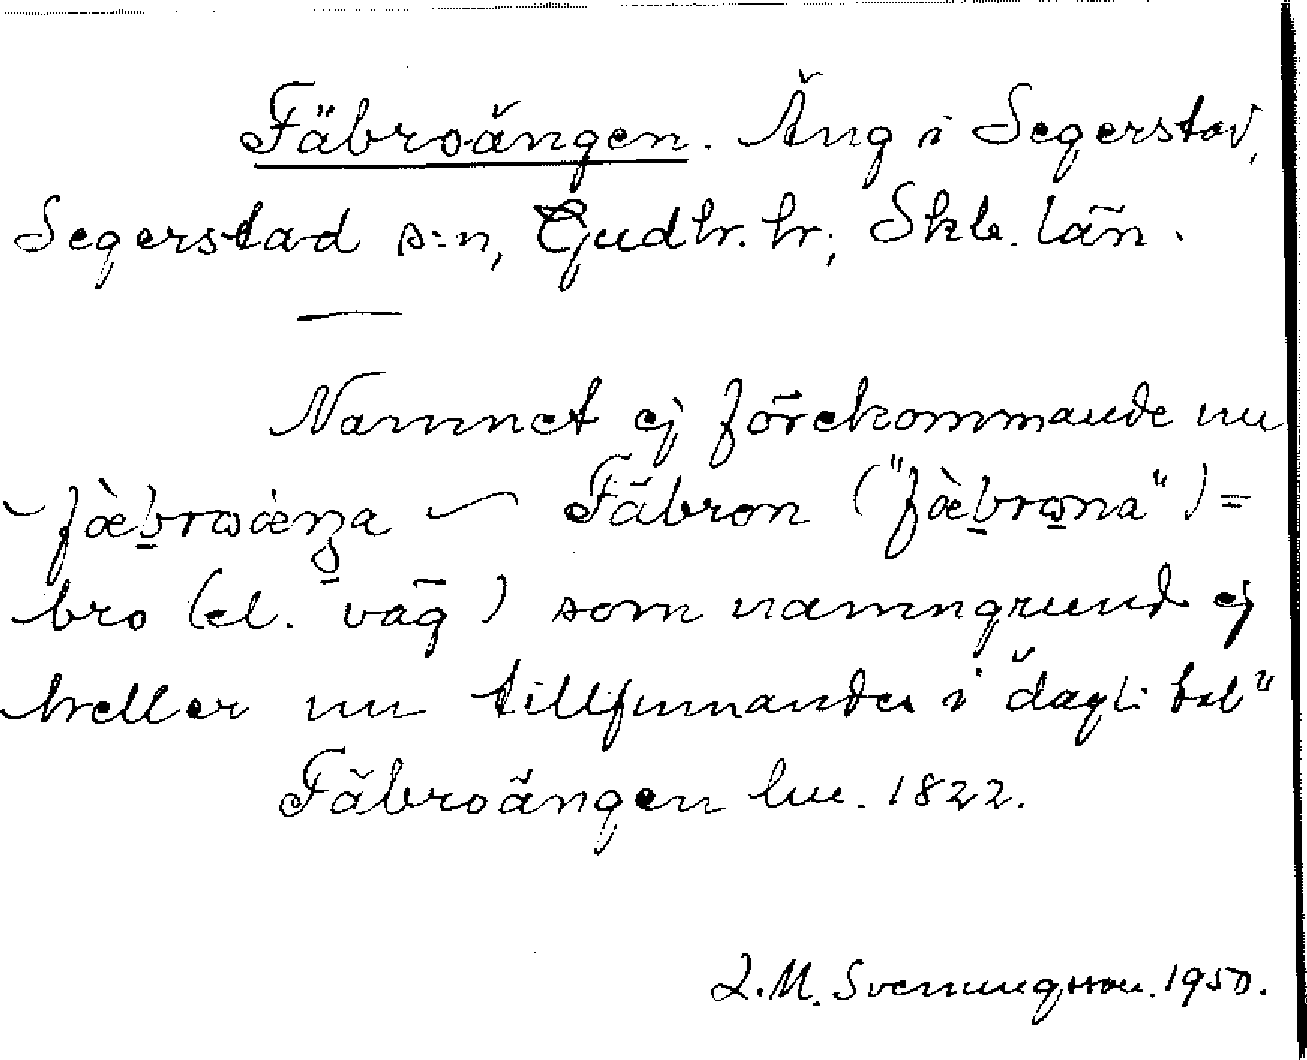 Fäbroängen. Äng i Segerstad,
Segerstad s:n, Gudhr. hr, Skb. län.
Namnet ej förekommande nu
– fä̀brωäŋa – Fäbron ("fä̀brωna") =
bro (el. väg) som namngrund ej
heller nu tillfinnandes i dagl. tal"
Fäbroängen lm. 1822.
L. M. Svenungsson. 1950.